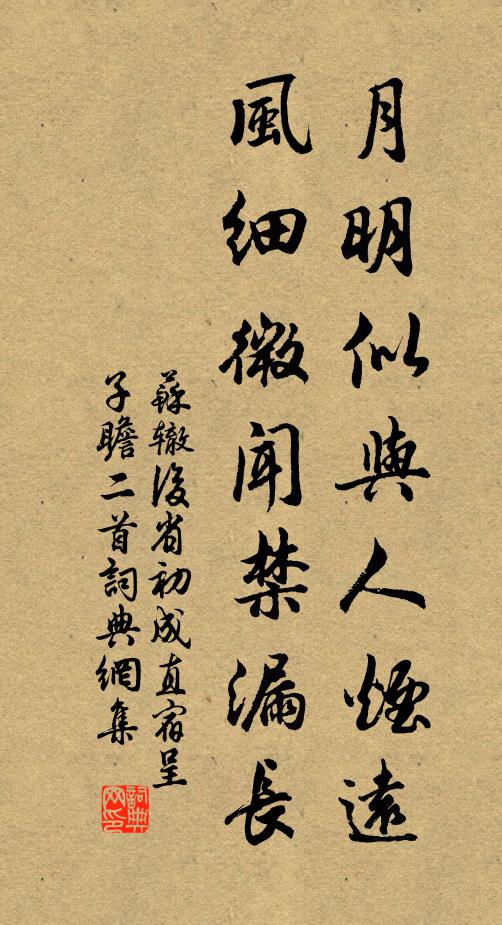 月明似與人煙遠
風細微聞禁漏長
蘇轍後省初成直宿呈
子瞻二首詞典網集
詞典
网印